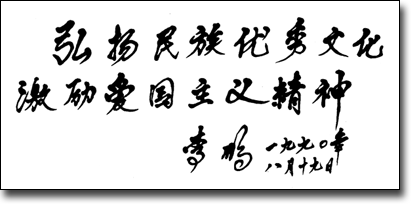 弘扬民族优秀文化
激励爱国主义精神
李鹏 一九九〇年
八月十九日